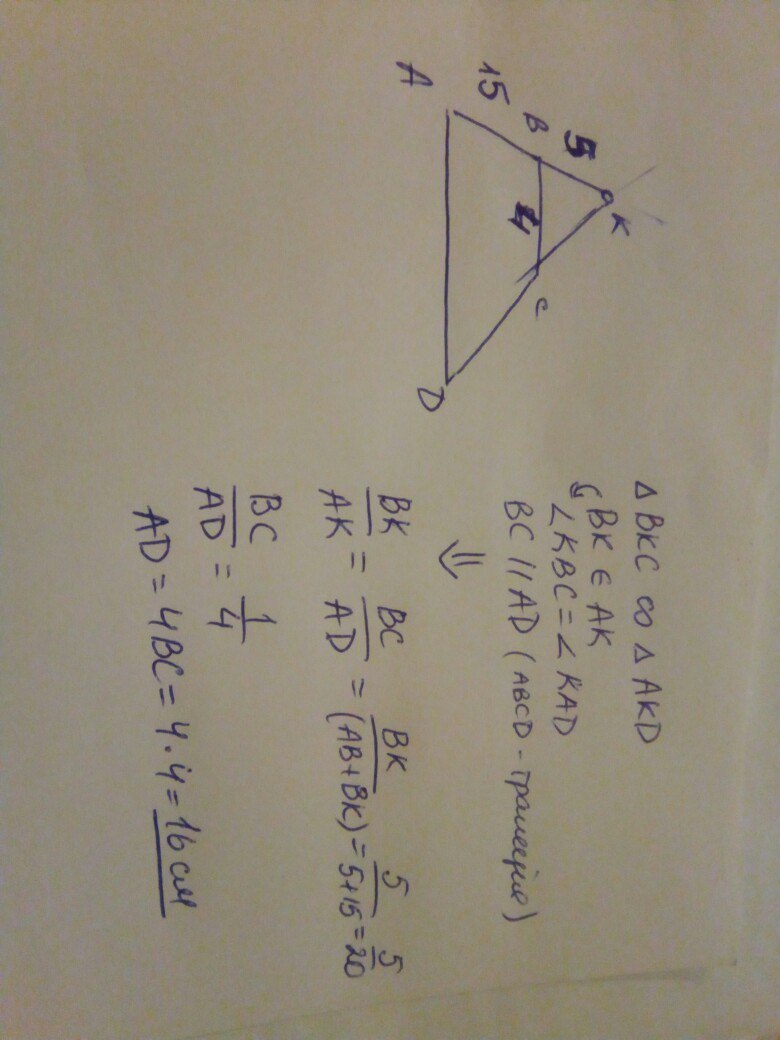 K
5
B
15
4
C
A
D
△ BKC ∞ △ AKD
BK ∈ AK
∠KBC = ∠KAD
BC || AD (ABCD - трапеция)
⇓
BK/AK = BC/AD = BK/(AB+BK) = 5/5+15 = 5/20
BC/AD = 1/4
AD = 4BC = 4·4 = 16 см